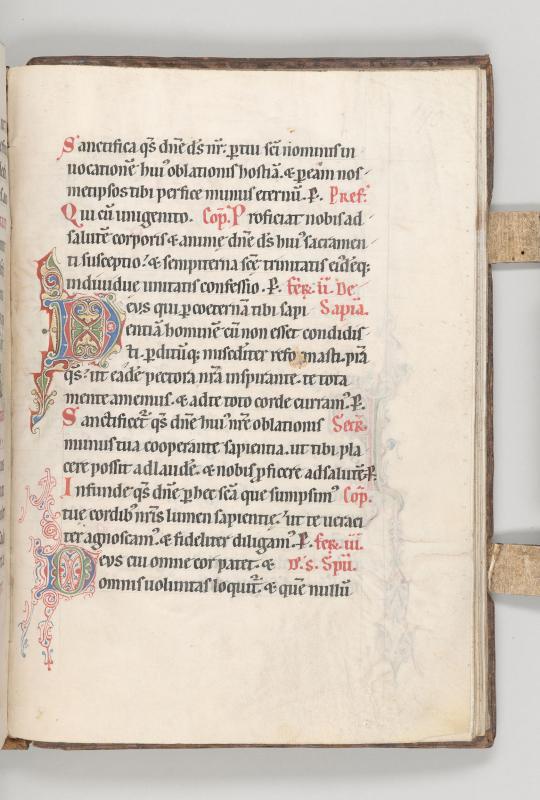 Sanctifica q̄s dn̄e ds̄ nr̄ p̲ tui sci nominis in
uocationē hui᷒ oblationis hostiā. & p̲ eam nos
metipsos tibi perfice munus eternū. P̲. Pref.
Qui cū unigenito. Cōp. Proficiat nobis ad
salutē corporis & anime dn̄e ds̄ hui᷒ sacramen
ti susceptio. & sempiterna scē trinitatis eidēq;
indiuidue unitatis confessio. P̲. fer. ii. De
Deus qui p̲ coeternā tibi sapi Sapia.
entiā hominē cū non esset condidis
ti. p̲ditūq; misediter reformasti. p̄ta
q̄s. ut eadē pectora nrā inspirante. te tota
mente amemus. & ad te toto corde curram᷒. P̲.
Sanctificet᷑ q̄s dn̄e hui᷒ nr̄e oblationis Secr.
munus tua cooperante sapientia. ut tibi pla
cere possit ad laudē. & nobis p̲ficere ad salutē. P̲.
Infunde q̄s dn̄e p̲ hec scā que sumpsim᷒ Cōp.
tue cordib᷒ nr̄is lumen sapientie. ut te uraci
ter agnoscam᷒. & fideliter diligam᷒. P̲. fer. iii.
Deus cui omne cor patet. & D. s. Spū.
omnis uoluntas loquit᷑. & quē nullū